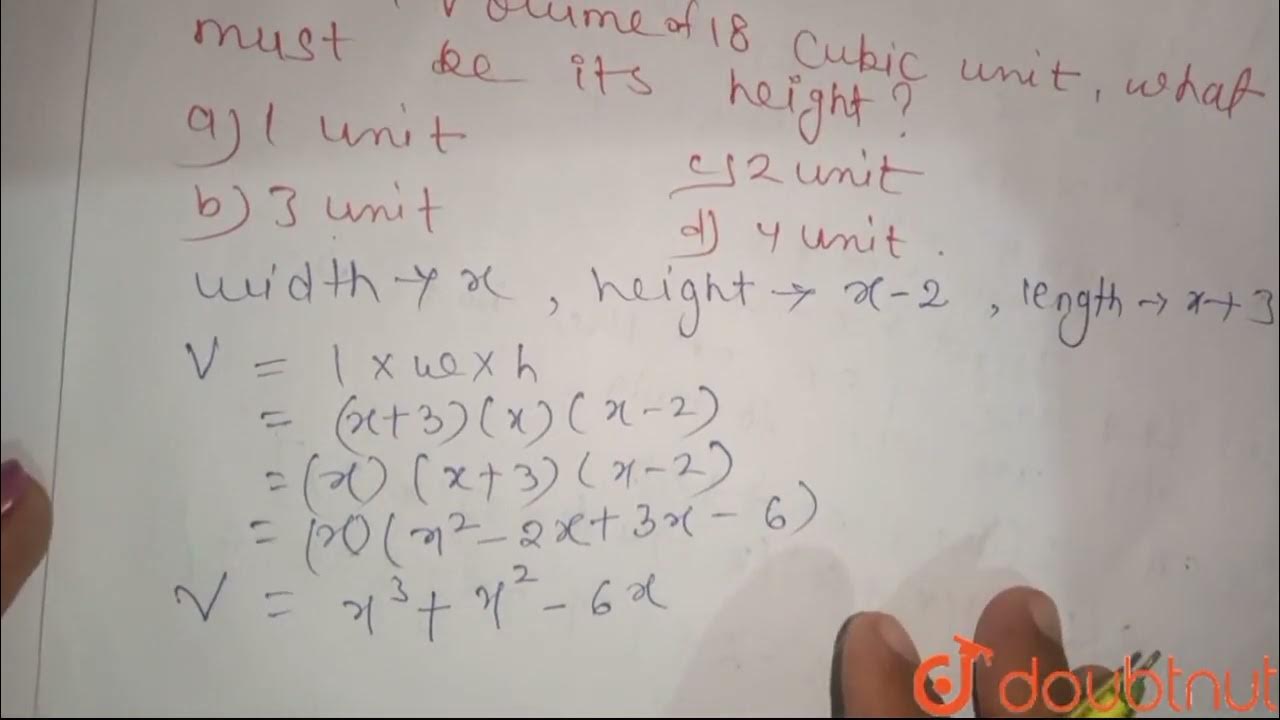 Volume of 18 Cubic unit, what
must be its height?
a) 1 unit
c) 2 unit
b) 3 unit
d) 4 unit.
width → x, height → x-2, length → x+3
V = l × w × h
= (x+3)(x)(x-2)
= (x)(x+3)(x-2)
= (x)(x²-2x+3x-6)
V = x³+x²-6x
doubtnut